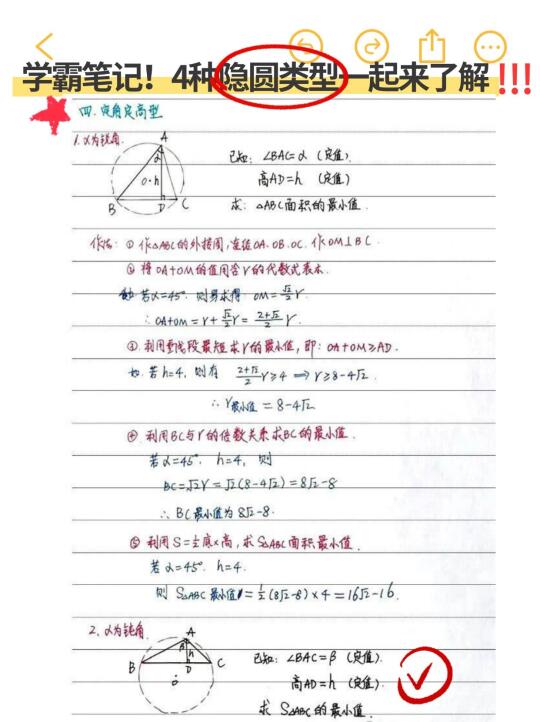 学霸笔记！4种隐圆类型一起来了解!!!
四.定角定高型
1.α为锐角.
A
α
O
h
B
D
C
已知: ∠BAC=α (定值).
高AD=h (定值)
求: △ABC面积的最小值.
作法: ① 作△ABC的外接圆,连接OA.OB.OC. 作OM⊥BC.
② 将OA+OM的值用含r的代数式表示.
若α=45°. 则易求得 OM=√2/2r.
∴OA+OM=r+√2/2r=2+√2/2r.
③ 利用垂线段最短求r的最小值,即: OA+OM≥AD.
如. 若h=4, 则有 2+√2/2r≥4 ⟹ r≥8-4√2.
∴r最小值=8-4√2
④ 利用BC与r的倍数关系求BC的最小值.
若α=45°. h=4, 则
BC=√2r=√2(8-4√2)=8√2-8
∴BC最小值为8√2-8.
⑤ 利用S=½底×高,求S△ABC面积最小值.
若α=45°. h=4.
则 S△ABC最小值=½(8√2-8)×4=16√2-16.
2.α为钝角.
A
β
h
B
D
C
O
已知: ∠BAC=β (定值).
高AD=h (定值)
求 S△ABC的最小值.